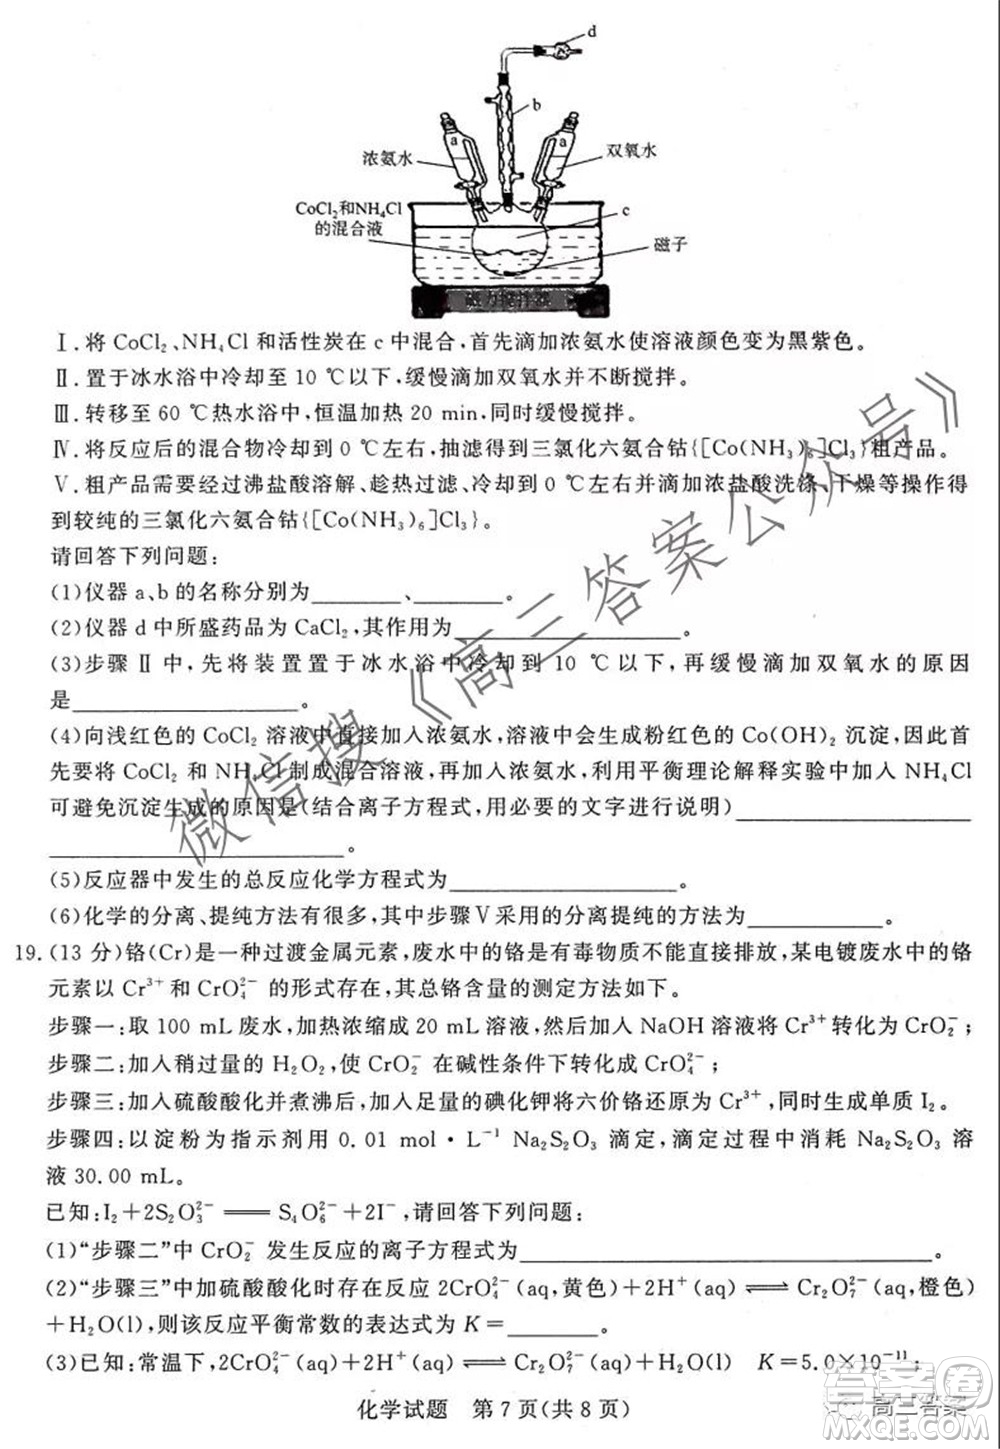 d
b
a
a
浓氨水
双氧水
CoCl₂和NH₄Cl
的混合液
c
磁子
磁力搅拌器
Ⅰ.将 CoCl₂、NH₄Cl 和活性炭在 c 中混合,首先滴加浓氨水使溶液颜色变为黑紫色。
Ⅱ.置于冰水浴中冷却至 10 ℃以下,缓慢滴加双氧水并不断搅拌。
Ⅲ.转移至 60 ℃热水浴中,恒温加热 20 min,同时缓慢搅拌。
Ⅳ.将反应后的混合物冷却到 0 ℃左右,抽滤得到三氯化六氨合钴{[Co(NH₃)₆]Cl₃}粗产品。
Ⅴ.粗产品需要经过沸盐酸溶解、趁热过滤、冷却到 0 ℃左右,滴加浓盐酸洗涤、干燥等操作得
到较纯的三氯化六氨合钴{[Co(NH₃)₆]Cl₃}。
请回答下列问题:
(1)仪器 a、b 的名称分别为________、________。
(2)仪器 d 中所盛药品为 CaCl₂,其作用为________________。
(3)步骤Ⅱ中,先将装置置于冰水浴中冷却到 10 ℃以下,再缓慢滴加双氧水的原因
是________________。
(4)向浅红色的 CoCl₂ 溶液中直接加入浓氨水,溶液中会生成粉红色的 Co(OH)₂ 沉淀,因此首
先要将 CoCl₂ 和 NH₄Cl 制成混合溶液,再加入浓氨水,利用平衡理论解释实验中加入 NH₄Cl
可避免沉淀生成的原因是(结合离子方程式,用必要的文字进行说明)________________
________________。
(5)反应器中发生的总反应化学方程式为________________。
(6)化学的分离、提纯方法有很多,其中步骤Ⅴ采用的分离提纯的方法为________。
19.(13 分)铬(Cr)是一种过渡金属元素,废水中的铬是有毒物质不能直接排放,某电镀废水中的铬
元素以 Cr³⁺ 和 CrO₄²⁻ 的形式存在,其总铬含量的测定方法如下。
步骤一:取 100 mL 废水,加热浓缩成 20 mL 溶液,然后加入 NaOH 溶液将 Cr³⁺ 转化为 CrO₂⁻;
步骤二:加入稍过量的 H₂O₂,使 CrO₂⁻ 在碱性条件下转化成 CrO₄²⁻;
步骤三:加入硫酸酸化并煮沸后,加入足量的碘化钾将六价铬还原为 Cr³⁺,同时生成单质 I₂。
步骤四:以淀粉为指示剂用 0.01 mol·L⁻¹ Na₂S₂O₃ 滴定,滴定过程中消耗 Na₂S₂O₃ 溶
液 30.00 mL。
已知:I₂+2S₂O₃²⁻ === S₄O₆²⁻+2I⁻,请回答下列问题:
(1)“步骤二”中 CrO₂⁻ 发生反应的离子方程式为________________
(2)“步骤三”中加硫酸酸化时存在反应 2CrO₄²⁻(aq,黄色)+2H⁺(aq) ⇌ Cr₂O₇²⁻(aq,橙色)
+H₂O(l),则该反应平衡常数的表达式为 K=________。
(3)已知:常温下,2CrO₄²⁻(aq)+2H⁺(aq) ⇌ Cr₂O₇²⁻(aq)+H₂O(l) K=5.0×10⁻¹¹;
化学试题 第 7 页(共 8 页)
微信搜《高三答案公众号》
答案圈
高三答案
MXQE.COM